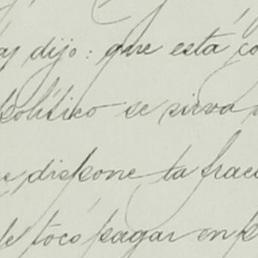 dijo: que está co
político se sirva
dispone la frac
le tocó pagar en p